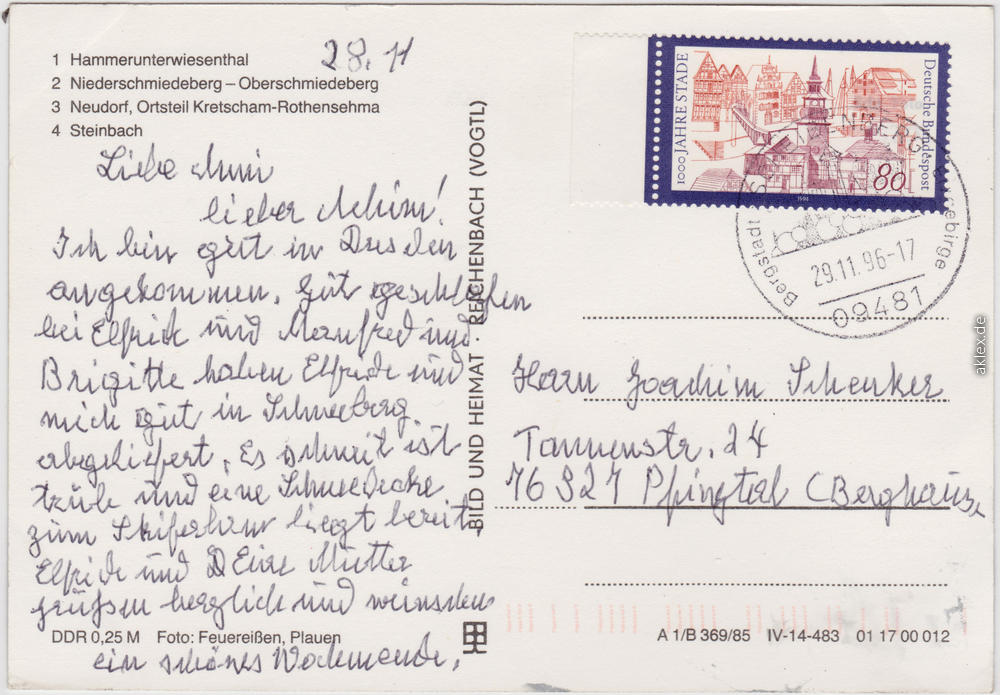 1 Hammerunterwiesenthal
2 Niederschmiedeberg – Oberschmiedeberg
3 Neudorf, Ortsteil Kretscham-Rothensehma
4 Steinbach
28. 11
Liebe
lieber Achim!
Ich bin gut in Dresden
angekommen, gut geschlafen
bei Elfride und Manfred und
Brigitte haben Elfride und
mich gut in Schneeberg
abgeliefert. Es schneit ist
trübe und eine Schneedecke
zum Skifahren liegt bereit.
Elfride und Deine Mutter
grüßen herzlich und wünschen
ein schönes Wochenende.
DDR 0,25 M Foto: Feuereißen, Plauen
BILD UND HEIMAT REICHENBACH (VOGTL)
1000 JAHRE STADE
Deutsche Bundespost
80
1994
Bergstadt
29.11.96-17
09481
Herrn Joachim Schenker
Tannenstr. 24
76327 Pfinztal (Berghausen
A 1/B 369/85 IV-14-483 01 17 00 012
aklex.de